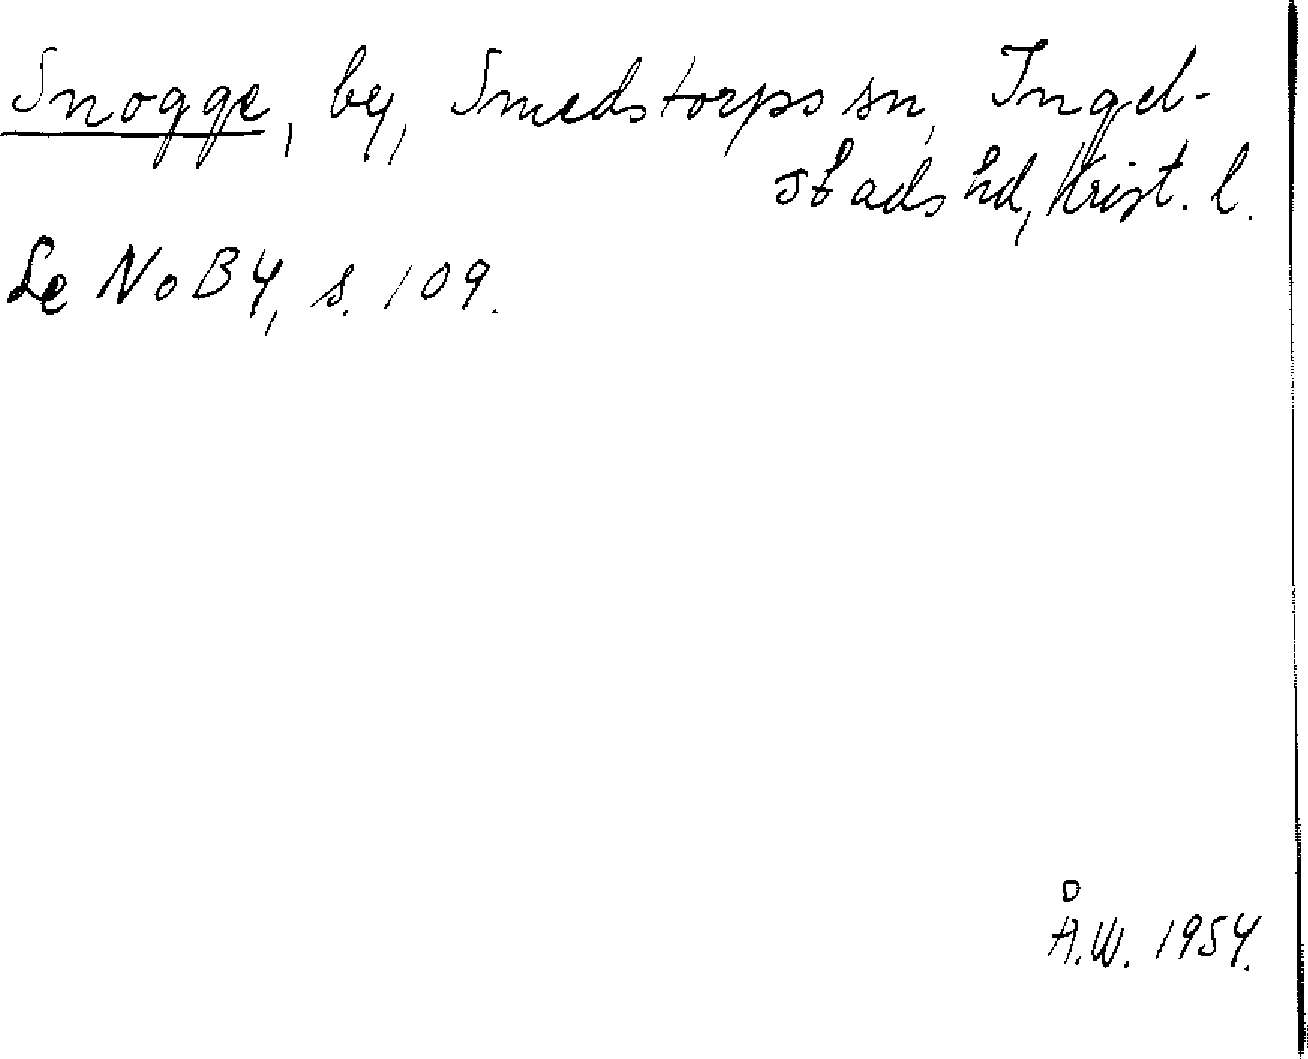 Snogge, by, Smedstorps sn, Ingel-
stads hd, Krist. l.
Se NoB 4, s. 109.
Å.W. 1954.